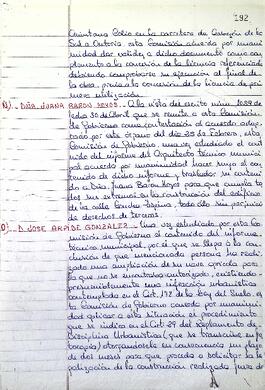 192
Quintana Calia en la carretera de Corazón de la
Sed a Ontoria esta Comisión acuerda por unani-
midad dar valida a dicho documento como com-
plemento a la concesión de la licencia referenciada
debiendo comprobarse su ejecución al final de la
obra, previa a la concesión de la licencia de pri-
mera utilización.
N).- DÑA. JUANA BARON HOYOS.- A la vista del escrito núm. 1089 de
fecha 30 de Abril que se remite a esta Comisión
de Gobierno como contestación al acuerdo adop-
tado por este órgano del día 25 de Febrero, esta
Comisión de Gobierno, una vez estudiado el conte-
nido del informe del Arquitecto técnico munici-
pal acuerda por unanimidad hacer suyo el con-
tenido de dicho informe y trasladar su contenido
a Dña. Juana Baron Hoyos para que cumpla to-
dos sus extremos en la construcción del edificio
de la calle todo ello sin perjuicio
de derechos de terceros.
O).- D. JOSE ARPIDE GONZALEZ.- Una vez estudiado por esta Co-
misión de Gobierno el contenido del informe del
técnico municipal, por el que se llega a la con-
clusión de que mencionada persona ha reali-
zado una ampliación de su nave agrícola para
la que no se encontraba autorizado, existiendo
presumiblemente una infracción urbanística
contemplada en el Art. 178 de la Ley del Suelo,
la Comisión de Gobierno acuerda por unanimi-
dad aplicar a esta situación el procedimiento
que se indica en el Art. 29 del Reglamento de
Disciplina Urbanística (que se transcribe en fo-
tocopia) otorgándosele en consecuencia un plazo
de dos meses para que proceda a solicitar la le-
galización de la construcción realizada fuera de